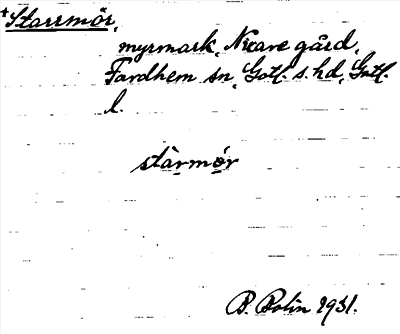 *Starrmör,
myrmark, Nicare gård,
Fardhem sn, Gotl. s. hd, Gotl.
l.
starmör
B. Bolin 1931.